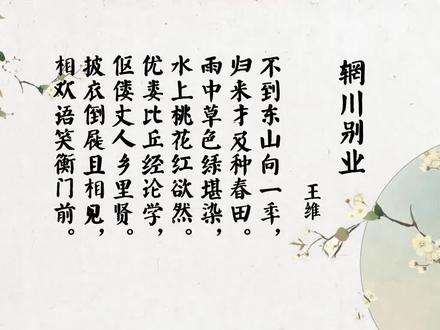 辋川别业
王维
不到东山向一年,
归来才及种春田。
雨中草色绿堪染,
水上桃花红欲然。
优娄比丘经论学,
伛偻丈人乡里贤。
披衣倒屣且相见,
相欢语笑衡门前。